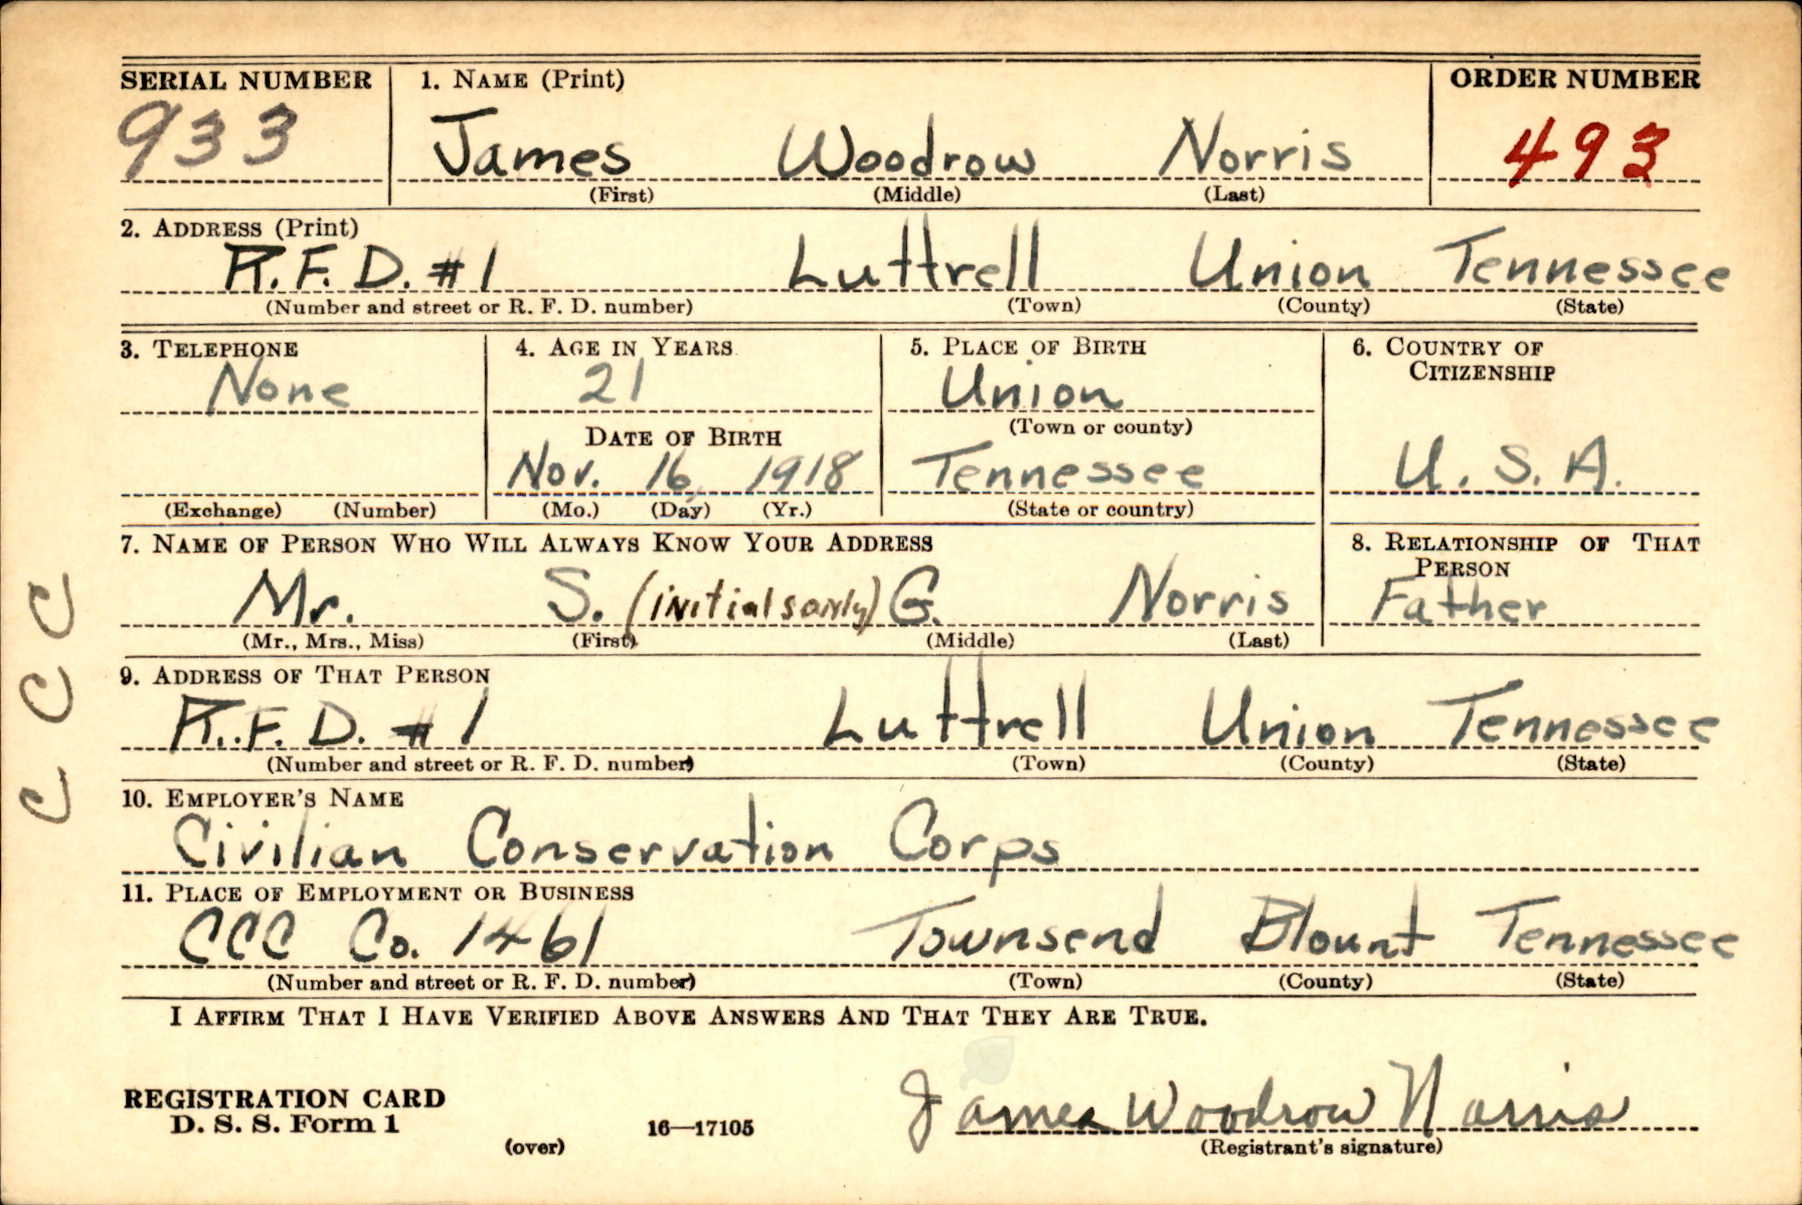 SERIAL NUMBER 1. NAME (Print) ORDER NUMBER
933 James Woodrow Norris 493
(First) (Middle) (Last)
2. ADDRESS (Print)
R.F.D. #1 Luttrell Union Tennessee
(Number and street or R. F. D. number) (Town) (County) (State)
3. TELEPHONE 4. AGE IN YEARS 5. PLACE OF BIRTH 6. COUNTRY OF CITIZENSHIP
None 21 Union
(Town or county)
DATE OF BIRTH
Nov. 16, 1918 Tennessee U. S. A.
(Exchange) (Number) (Mo.) (Day) (Yr.) (State or country)
7. NAME OF PERSON WHO WILL ALWAYS KNOW YOUR ADDRESS 8. RELATIONSHIP OF THAT PERSON
Mr. S. (initials only) G. Norris Father
(Mr., Mrs., Miss) (First) (Middle) (Last)
9. ADDRESS OF THAT PERSON
R.F.D. #1 Luttrell Union Tennessee
(Number and street or R. F. D. number) (Town) (County) (State)
10. EMPLOYER'S NAME
Civilian Conservation Corps
11. PLACE OF EMPLOYMENT OR BUSINESS
CCC Co. 1461 Townsend Blount Tennessee
(Number and street or R. F. D. number) (Town) (County) (State)
I AFFIRM THAT I HAVE VERIFIED ABOVE ANSWERS AND THAT THEY ARE TRUE.
REGISTRATION CARD
D. S. S. Form 1
(over) 16—17105
James Woodrow Norris
(Registrant's signature)
CCC